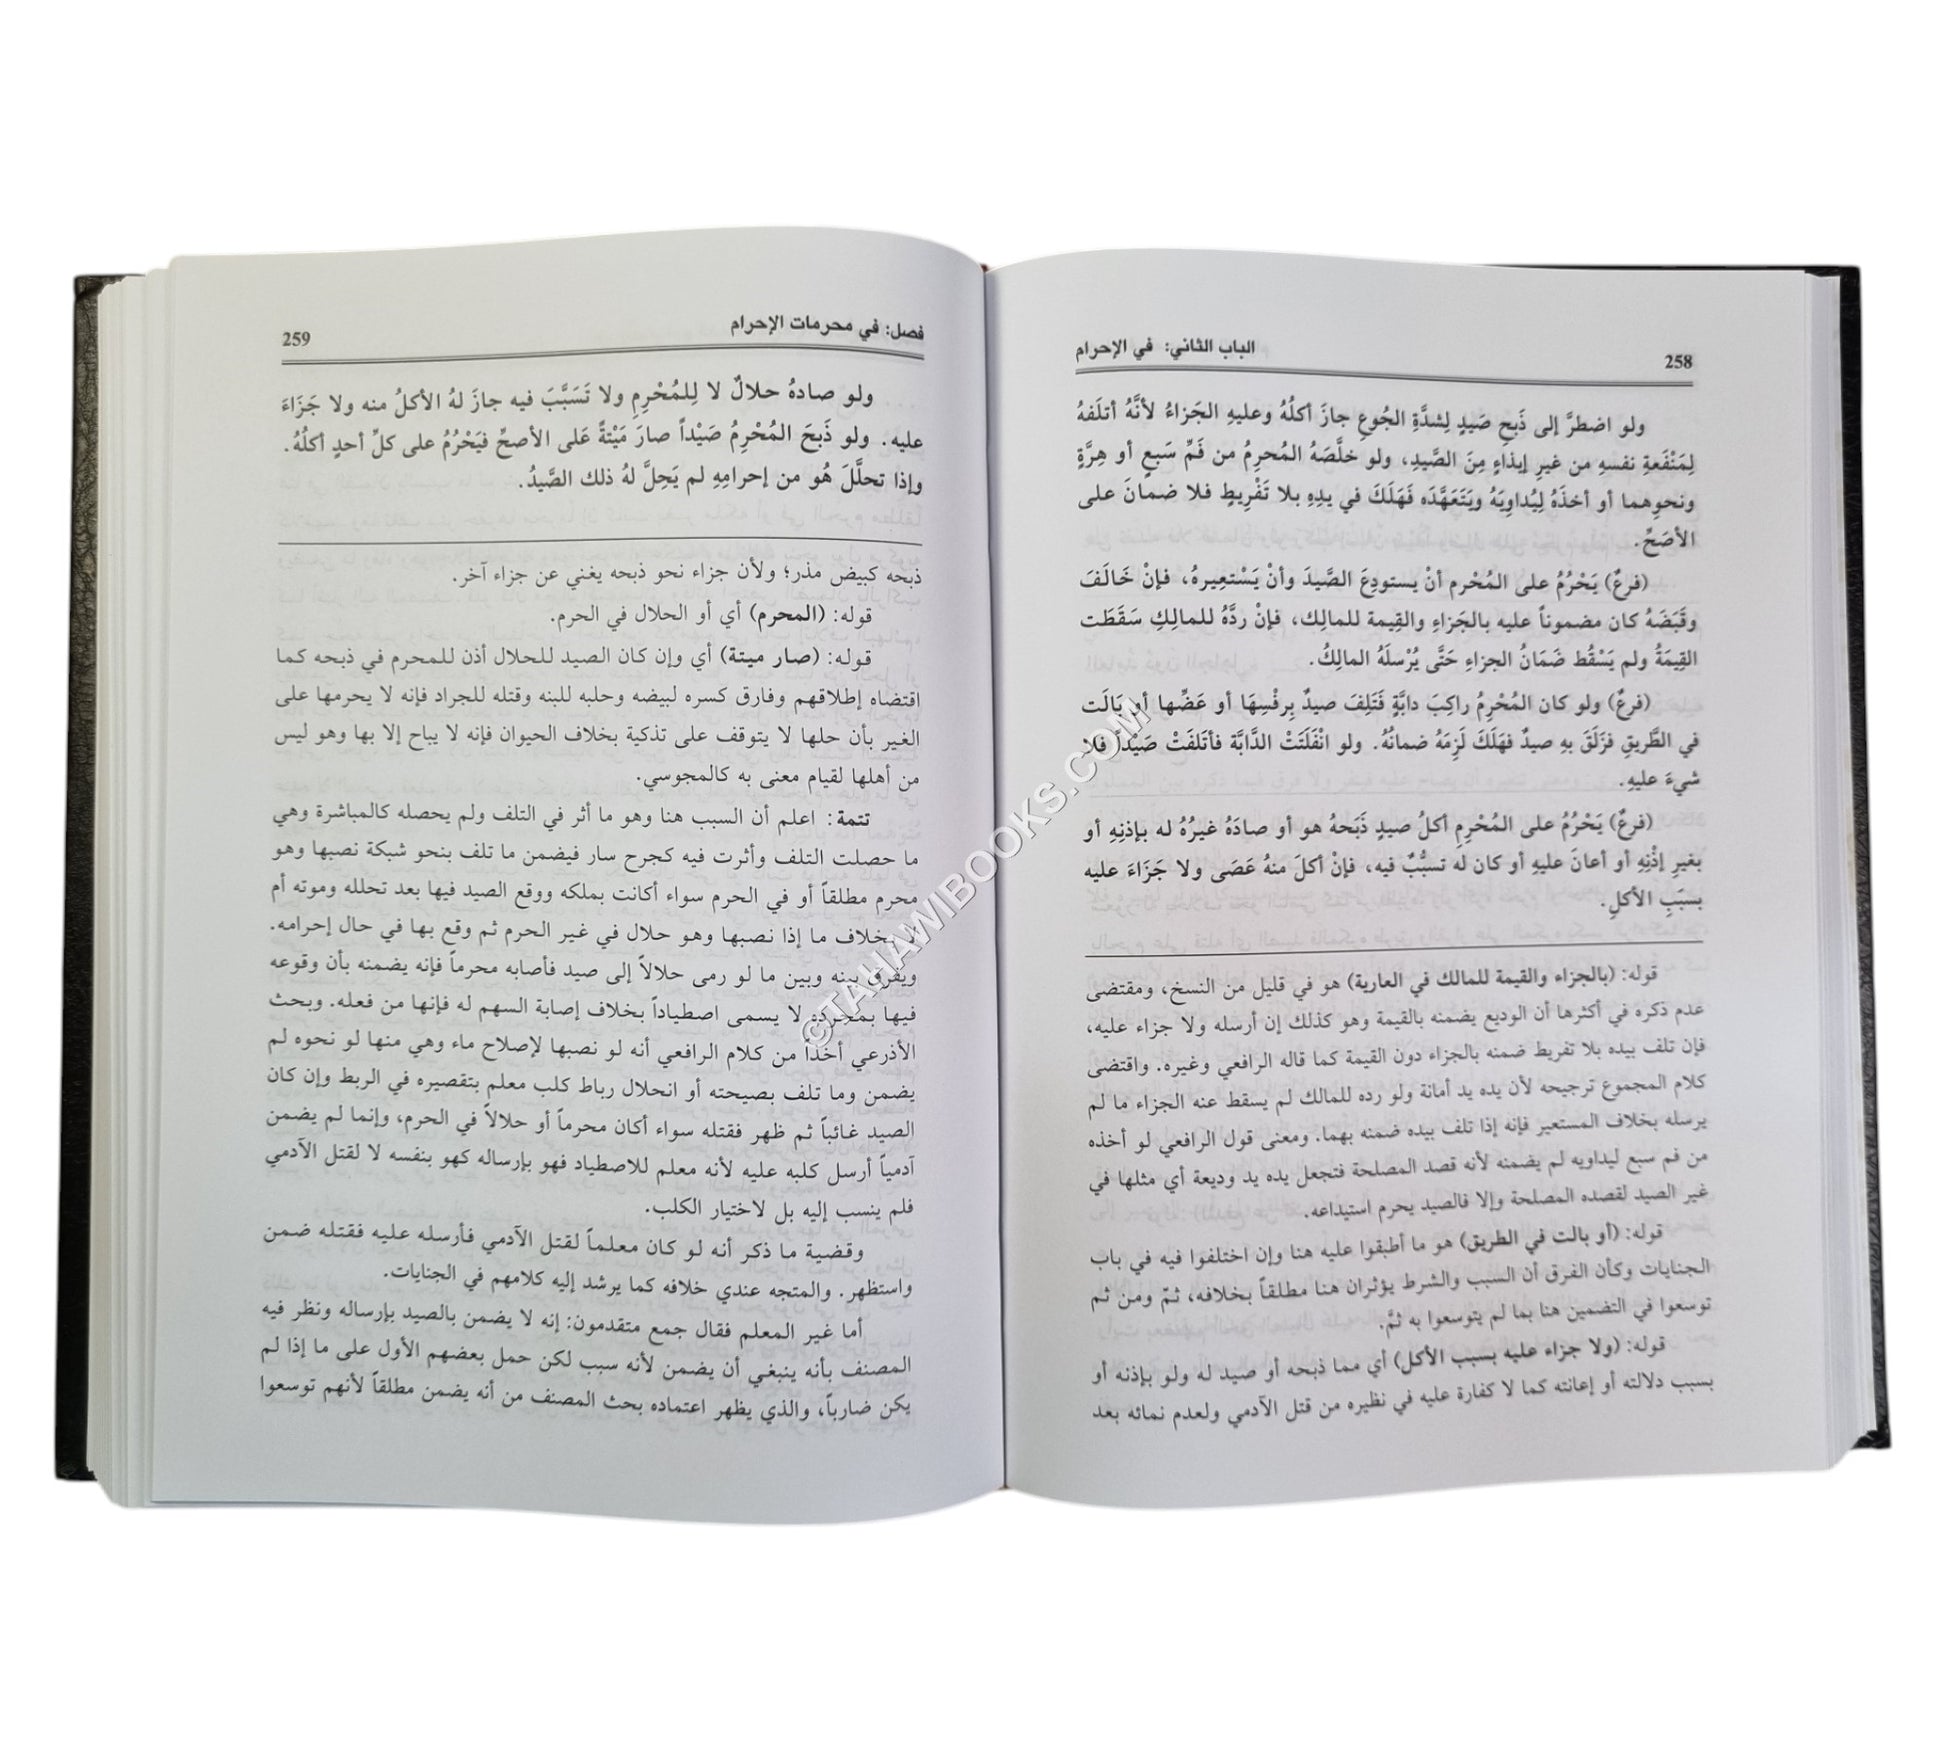 258
الباب الثاني: في الإحرام
ولو اضطرَّ إلى ذَبحِ صَيدٍ لِشدَّةِ الجُوعِ جازَ أكلُهُ وعليهِ الجَزاءُ لأنَّهُ أتلَفهُ
لِمَنْفَعةِ نفسهِ من غيرِ إيذاءٍ مِنَ الصَّيدِ، ولو خلَّصَهُ المُحرِمُ من فَمِّ سَبعٍ أو هِرَّةٍ
ونحوِهما أو أخذَهُ لِيُداوِيَهُ ويَتَعَهَّدَه فَهَلَكَ في يدِهِ بلا تَفْرِيطٍ فلا ضمانَ على
الأصَحِّ.
(فرعٌ) يَحْرُمُ على المُحْرم أنْ يستودِعَ الصَّيدَ وأنْ يَسْتَعِيرهُ، فإنْ خَالَفَ
وقَبَضَهُ كان مضموناً عليه بالجَزاءِ والقِيمة للمالِك، فإنْ ردَّهُ للمالِكِ سَقَطَت
القِيمَةُ ولم يَسْقُط ضَمَانُ الجزاءِ حَتَّى يُرْسلَهُ المالِكُ.
(فرعٌ) ولو كان المُحْرِمُ راكِبَ دابَّةٍ فَتَلِفَ صيدٌ بِرفْسِهَا أو عَضِّها أو بَالَت
في الطَّريقِ فزَلَقَ بهِ صيدٌ فهَلَكَ لَزِمَهُ ضمانُهُ. ولو انْفَلَتَتْ الدَّابَّة فأتلَفتْ صَيْداً فلا
شيءَ عليهِ.
(فرعٌ) يَحْرُمُ على المُحْرِمِ أكلُ صيدٍ ذَبَحهُ هو أو صادَهُ غيرُهُ له بإذنِهِ أو
بغيرِ إذْنِهِ أو أعانَ عليهِ أو كان له تسبُّبٌ فيه، فإنْ أكلَ منهُ عَصَى ولا جَزَاءَ عليه
بسبَبِ الأكلِ.
قوله: (بالجزاء والقيمة للمالك في العارية) هو في قليل من النسخ، ومقتضى
عدم ذكره في أكثرها أن الوديع يضمنه بالقيمة وهو كذلك إن أرسله ولا جزاء عليه،
فإن تلف بيده بلا تفريط ضمنه بالجزاء دون القيمة كما قاله الرافعي وغيره. واقتضى
كلام المجموع ترجيحه لأن يده يد أمانة ولو رده للمالك لم يسقط عنه الجزاء ما لم
يرسله بخلاف المستعير فإنه إذا تلف بيده ضمنه بهما. ومعنى قول الرافعي لو أخذه
من فم سبع ليداويه لم يضمنه لأنه قصد المصلحة فتجعل يده يد وديعة أي مثلها في
غير الصيد لقصده المصلحة وإلا فالصيد يحرم استيداعه.
قوله: (أو بالت في الطريق) هو ما أطبقوا عليه هنا وإن اختلفوا فيه في باب
الجنايات وكأن الفرق أن السبب والشرط يؤثران هنا مطلقاً بخلافه، ثمّ ومن ثم
توسعوا في التضمين هنا بما لم يتوسعوا به ثمَّ.
قوله: (ولا جزاء عليه بسبب الأكل) أي مما ذبحه أو صيد له ولو بإذنه أو
بسبب دلالته أو إعانته كما لا كفارة عليه في نظيره من قتل الآدمي ولعدم نمائه بعد
فصل: في محرمات الإحرام
259
ولو صادهُ حلالٌ لا لِلمُحْرِمِ ولا تَسَبَّبَ فيه جازَ لهُ الأكلُ منه ولا جَزَاءَ
عليه. ولو ذَبحَ المُحْرِمُ صَيْداً صارَ مَيْتةً عَلى الأصحِّ فيَحْرُمُ على كلِّ أحدٍ أكلُهُ.
وإذا تحلَّلَ هُو من إحرامِهِ لم يَحِلَّ لهُ ذلك الصَّيدُ.
ذبحه كبيض مذر؛ ولأن جزاء نحو ذبحه يغني عن جزاء آخر.
قوله: (المحرم) أي أو الحلال في الحرم.
قوله: (صار ميتة) أي وإن كان الصيد للحلال أذن للمحرم في ذبحه كما
اقتضاه إطلاقهم وفارق كسره لبيضه وحلبه للبنه وقتله للجراد فإنه لا يحرمها على
الغير بأن حلها لا يتوقف على تذكية بخلاف الحيوان فإنه لا يباح إلا بها وهو ليس
من أهلها لقيام معنى به كالمجوسي.
تتمة: اعلم أن السبب هنا وهو ما أثر في التلف ولم يحصله كالمباشرة وهي
ما حصلت التلف وأثرت فيه كجرح سار فيضمن ما تلف بنحو شبكة نصبها وهو
محرم مطلقاً أو في الحرم سواء أكانت بملكه ووقع الصيد فيها بعد تحلله وموته أم
لا بخلاف ما إذا نصبها وهو حلال في غير الحرم ثم وقع بها في حال إحرامه.
ويفرق بينه وبين ما لو رمى حلالاً إلى صيد فأصابه محرماً فإنه يضمنه بأن وقوعه
فيها بمجرده لا يسمى اصطياداً بخلاف إصابة السهم له فإنها من فعله. وبحث
الأذرعي أخذاً من كلام الرافعي أنه لو نصبها لإصلاح ماء وهي منها لو نحوه لم
يضمن وما تلف بصيحته أو انحلال رباط كلب معلم بتقصيره في الربط وإن كان
الصيد غائباً ثم ظهر فقتله سواء أكان محرماً أو حلالاً في الحرم، وإنما لم يضمن
آدمياً أرسل كلبه عليه لأنه معلم للاصطياد فهو بإرساله كهو بنفسه لا لقتل الآدمي
فلم ينسب إليه بل لاختيار الكلب.
وقضية ما ذكر أنه لو كان معلماً لقتل الآدمي فأرسله عليه فقتله ضمن
واستظهر. والمتجه عندي خلافه كما يرشد إليه كلامهم في الجنايات.
أما غير المعلم فقال جمع متقدمون: إنه لا يضمن بالصيد بإرساله ونظر فيه
المصنف بأنه ينبغي أن يضمن لأنه سبب لكن حمل بعضهم الأول على ما إذا لم
يكن ضارباً، والذي يظهر اعتماده بحث المصنف من أنه يضمن مطلقاً لأنهم توسعوا
©TAHAWIBOOKS.COM